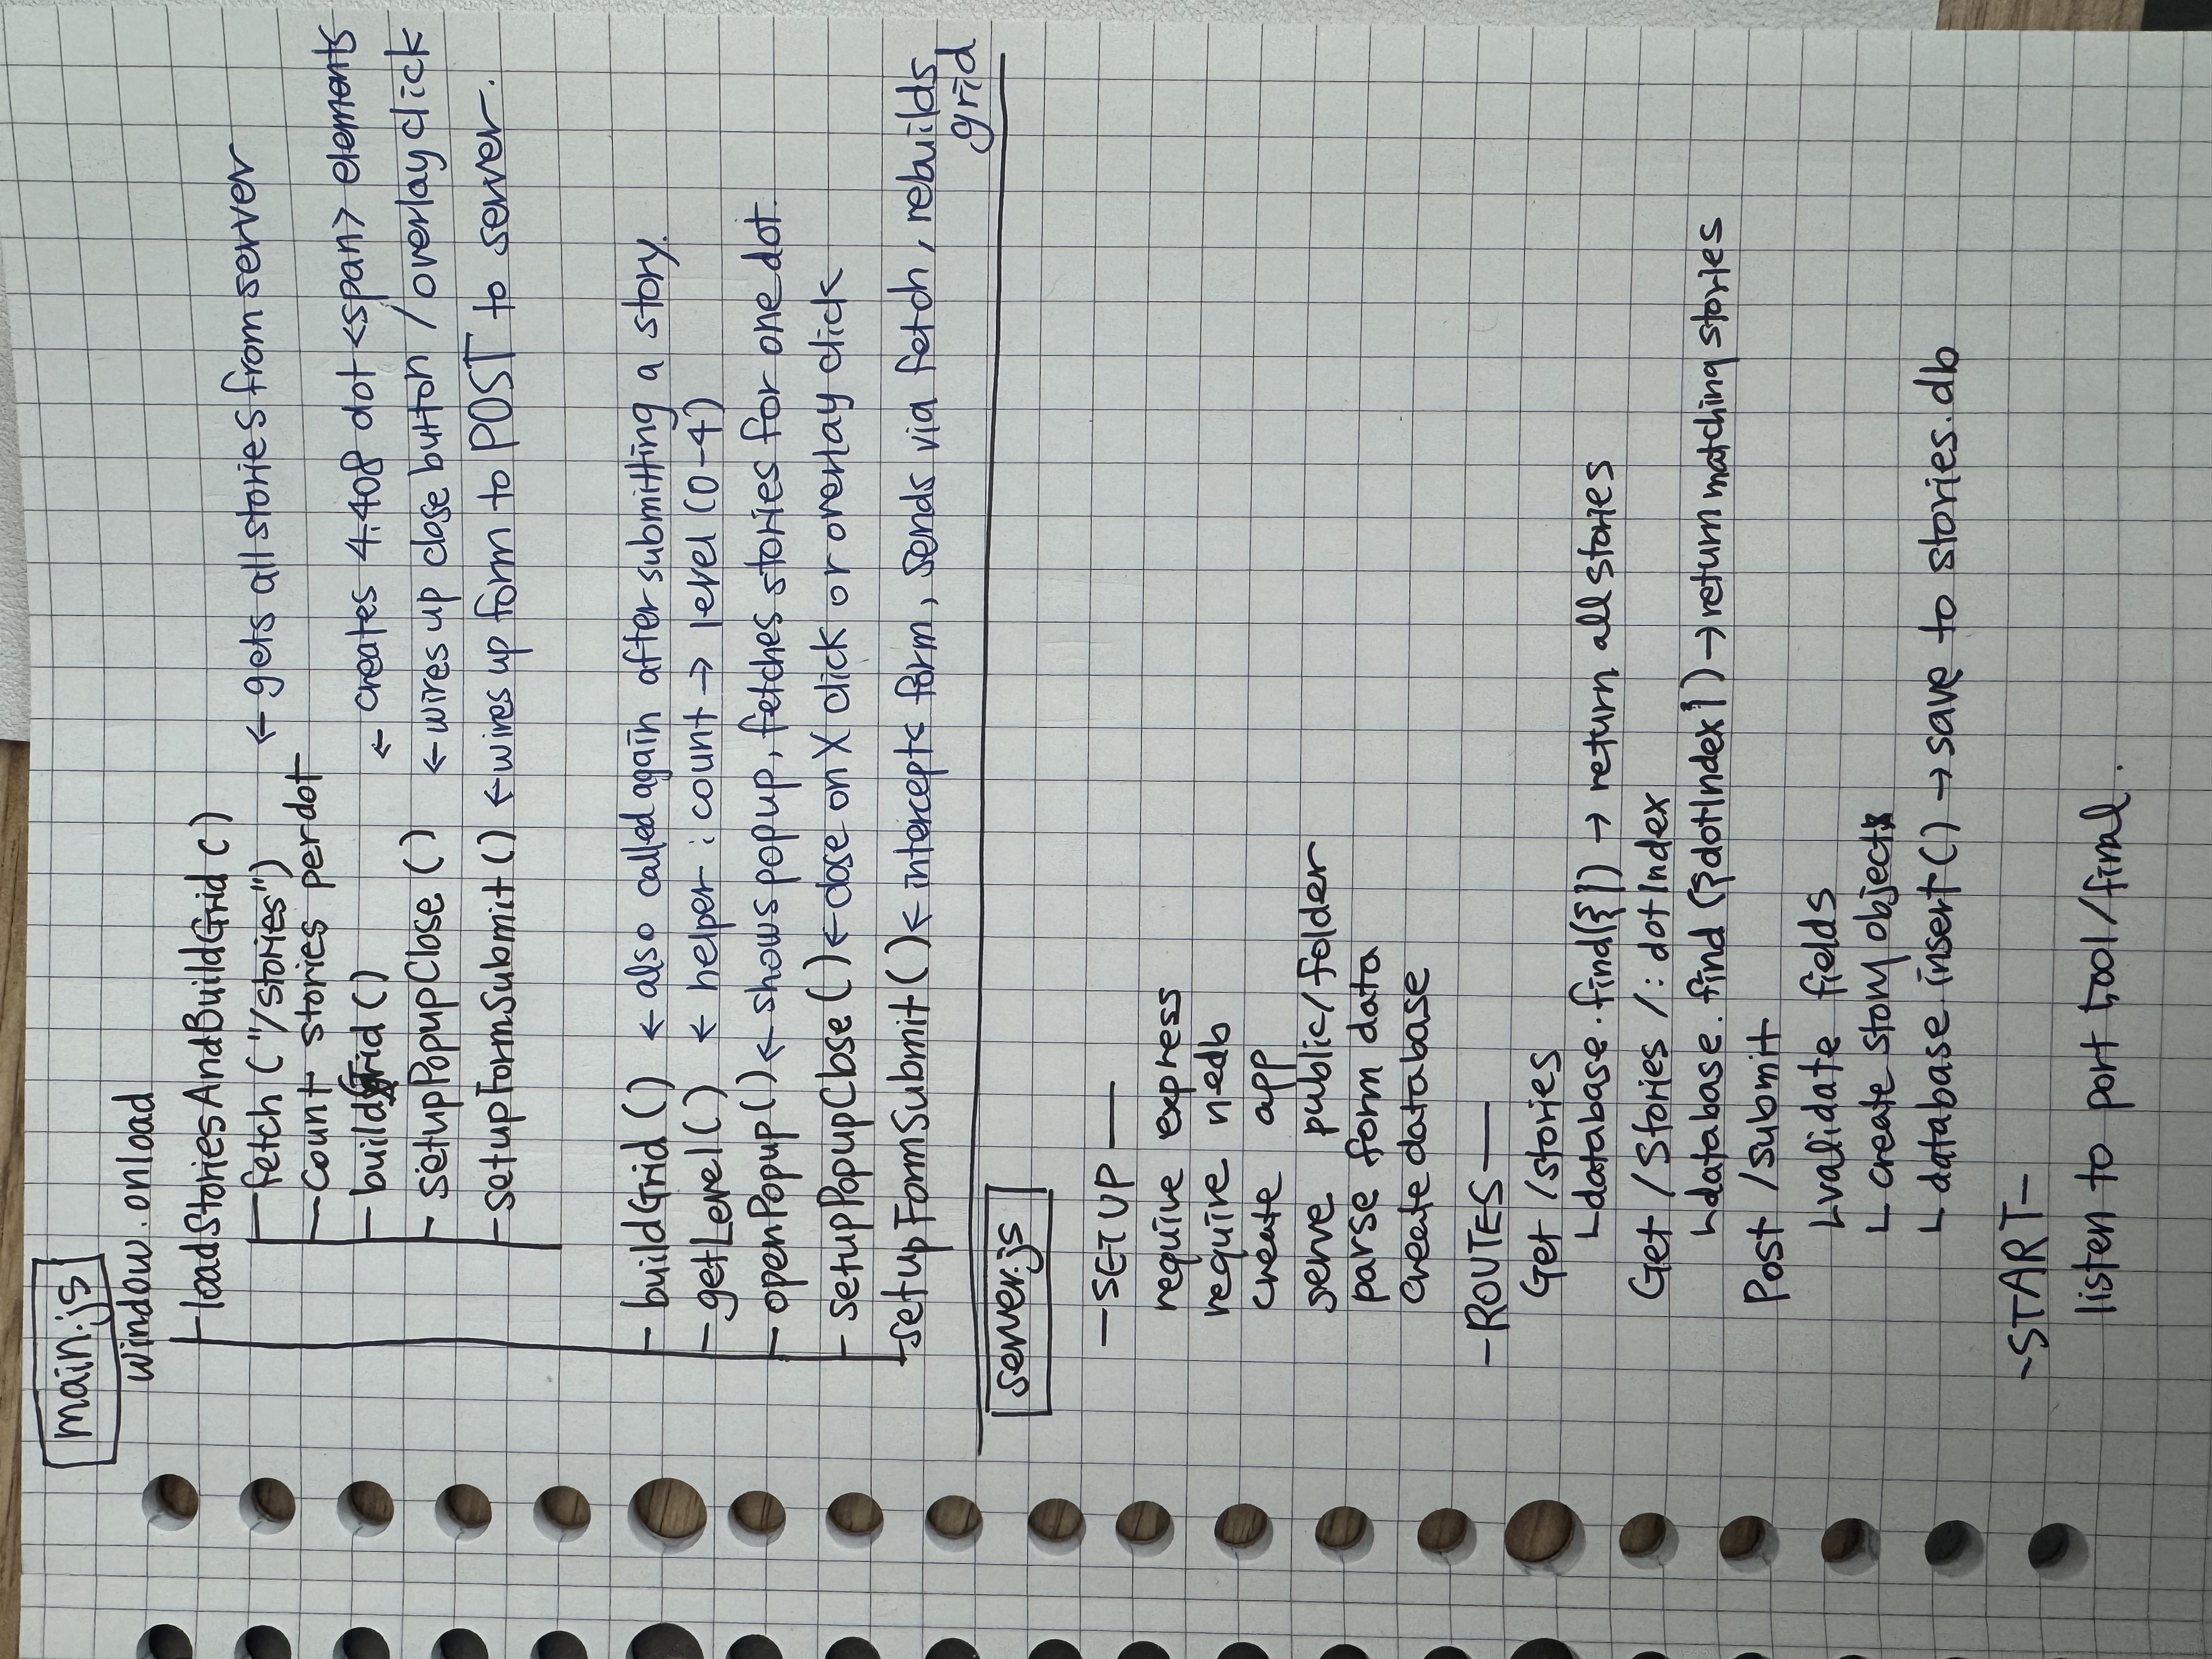 main.js
window.onload
loadStoriesAndBuildGrid()
- fetch ("/stories") ← gets all stories from server
- Count stories per dot
- buildGrid() ← creates 4.408 dot <span> elements
- setupPopupClose () ← wires up close button / overlay click
- setupFormSubmit () ← wires up form to POST to server.
- buildGrid () ← also called again after submitting a story.
- getLevel () ← helper : count → level (0-4)
- openPopup () ← shows popup, fetches stories for one dot.
- setupPopupClose () ← close on X click or overlay click
- setupFormSubmit () ← intercepts form, sends via fetch, rebuilds
grid
server.js
- SETUP —
require express
require nedb
create app
serve public/folder
parse form data
create database
- ROUTES —
Get /stories
↳ database.find({}) → return all stories
Get /stories /: dotIndex
↳ database.find ({dotIndex}) → return matching stories
Post /submit
↳ validate fields
↳ create story object
↳ database.insert() → save to stories.db
- START -
listen to port /final.